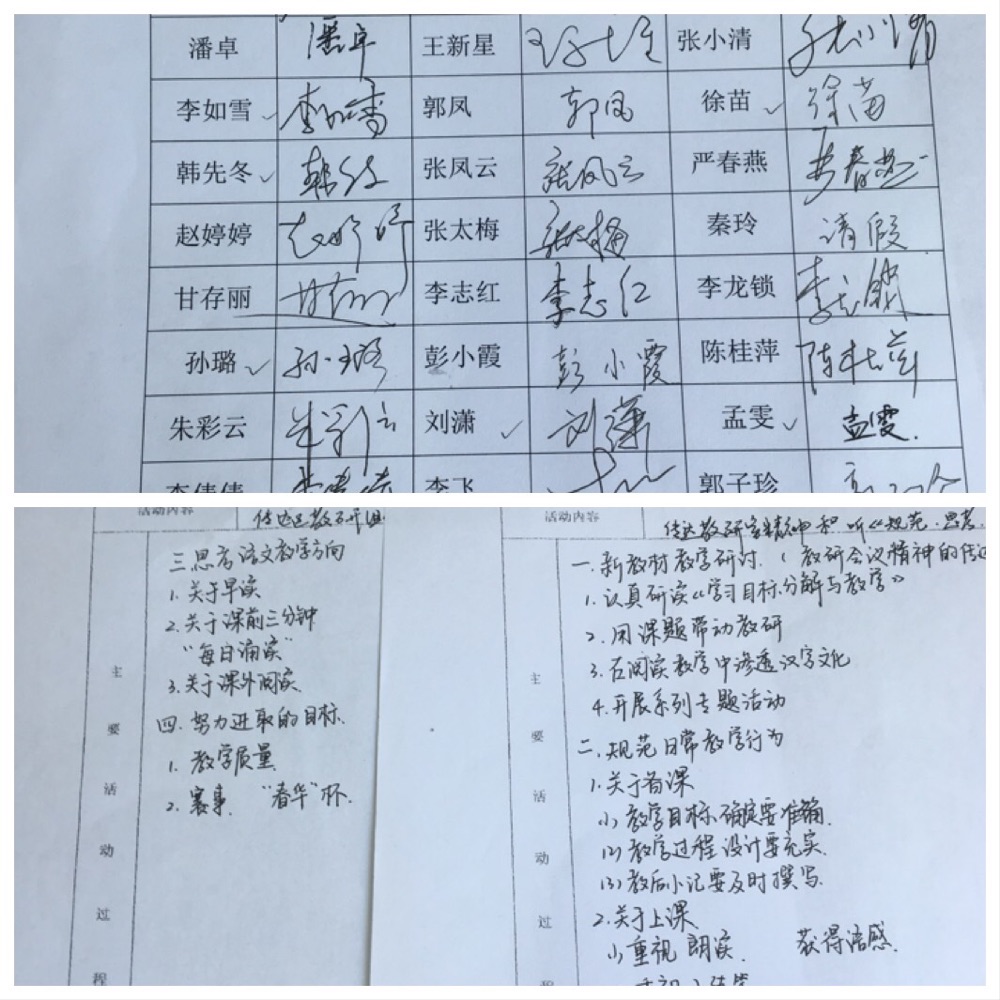 潘卓 潘卓 王新星 张小清
李如雪 李如雪 郭凤 郭凤 徐苗 徐苗
韩先冬 张凤云 张凤云 严春燕 严春燕
赵婷婷 张太梅 张太梅 秦玲 请假
甘存丽 甘存丽 李志红 李志红 李龙锁 李龙锁
孙璐 孙璐 彭小霞 彭小霞 陈桂萍
朱彩云 朱彩云 刘潇 刘潇 孟雯 孟雯
李倩倩 李飞 郭子珍
活动内容
传达区教研组
主要活动过程
三.思考语文教学方向
1.关于早读
2.关于课前三分钟
“每日诵读”
3.关于课外阅读
四.努力进取的目标.
1.教学质量
2.赛事. “春华”杯.
活动内容
传达教研室精神和听《规范.思考.
主要活动过程
一.新教材教学研讨.(教研会议精神的传达
1.认真研读《学习目标分解与教学》
2.用课题带动教研
3.在阅读教学中渗透汉字文化
4.开展系列专题活动
二.规范日常教学行为
1.关于备课
(1)教学目标确定要准确.
(2)教学过程设计要充实.
(3)教后小记要及时撰写.
2.关于上课
(1)重视朗读. 获得语感.